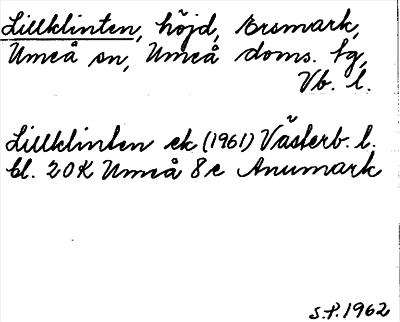 Lillklinten, höjd, Ersmark,
Umeå sn, Umeå doms. tg,
Vb. l.
Lillklinten ek (1961) Västerb. l.
bl. 20K Umeå 8c Anumark
S.P. 1962